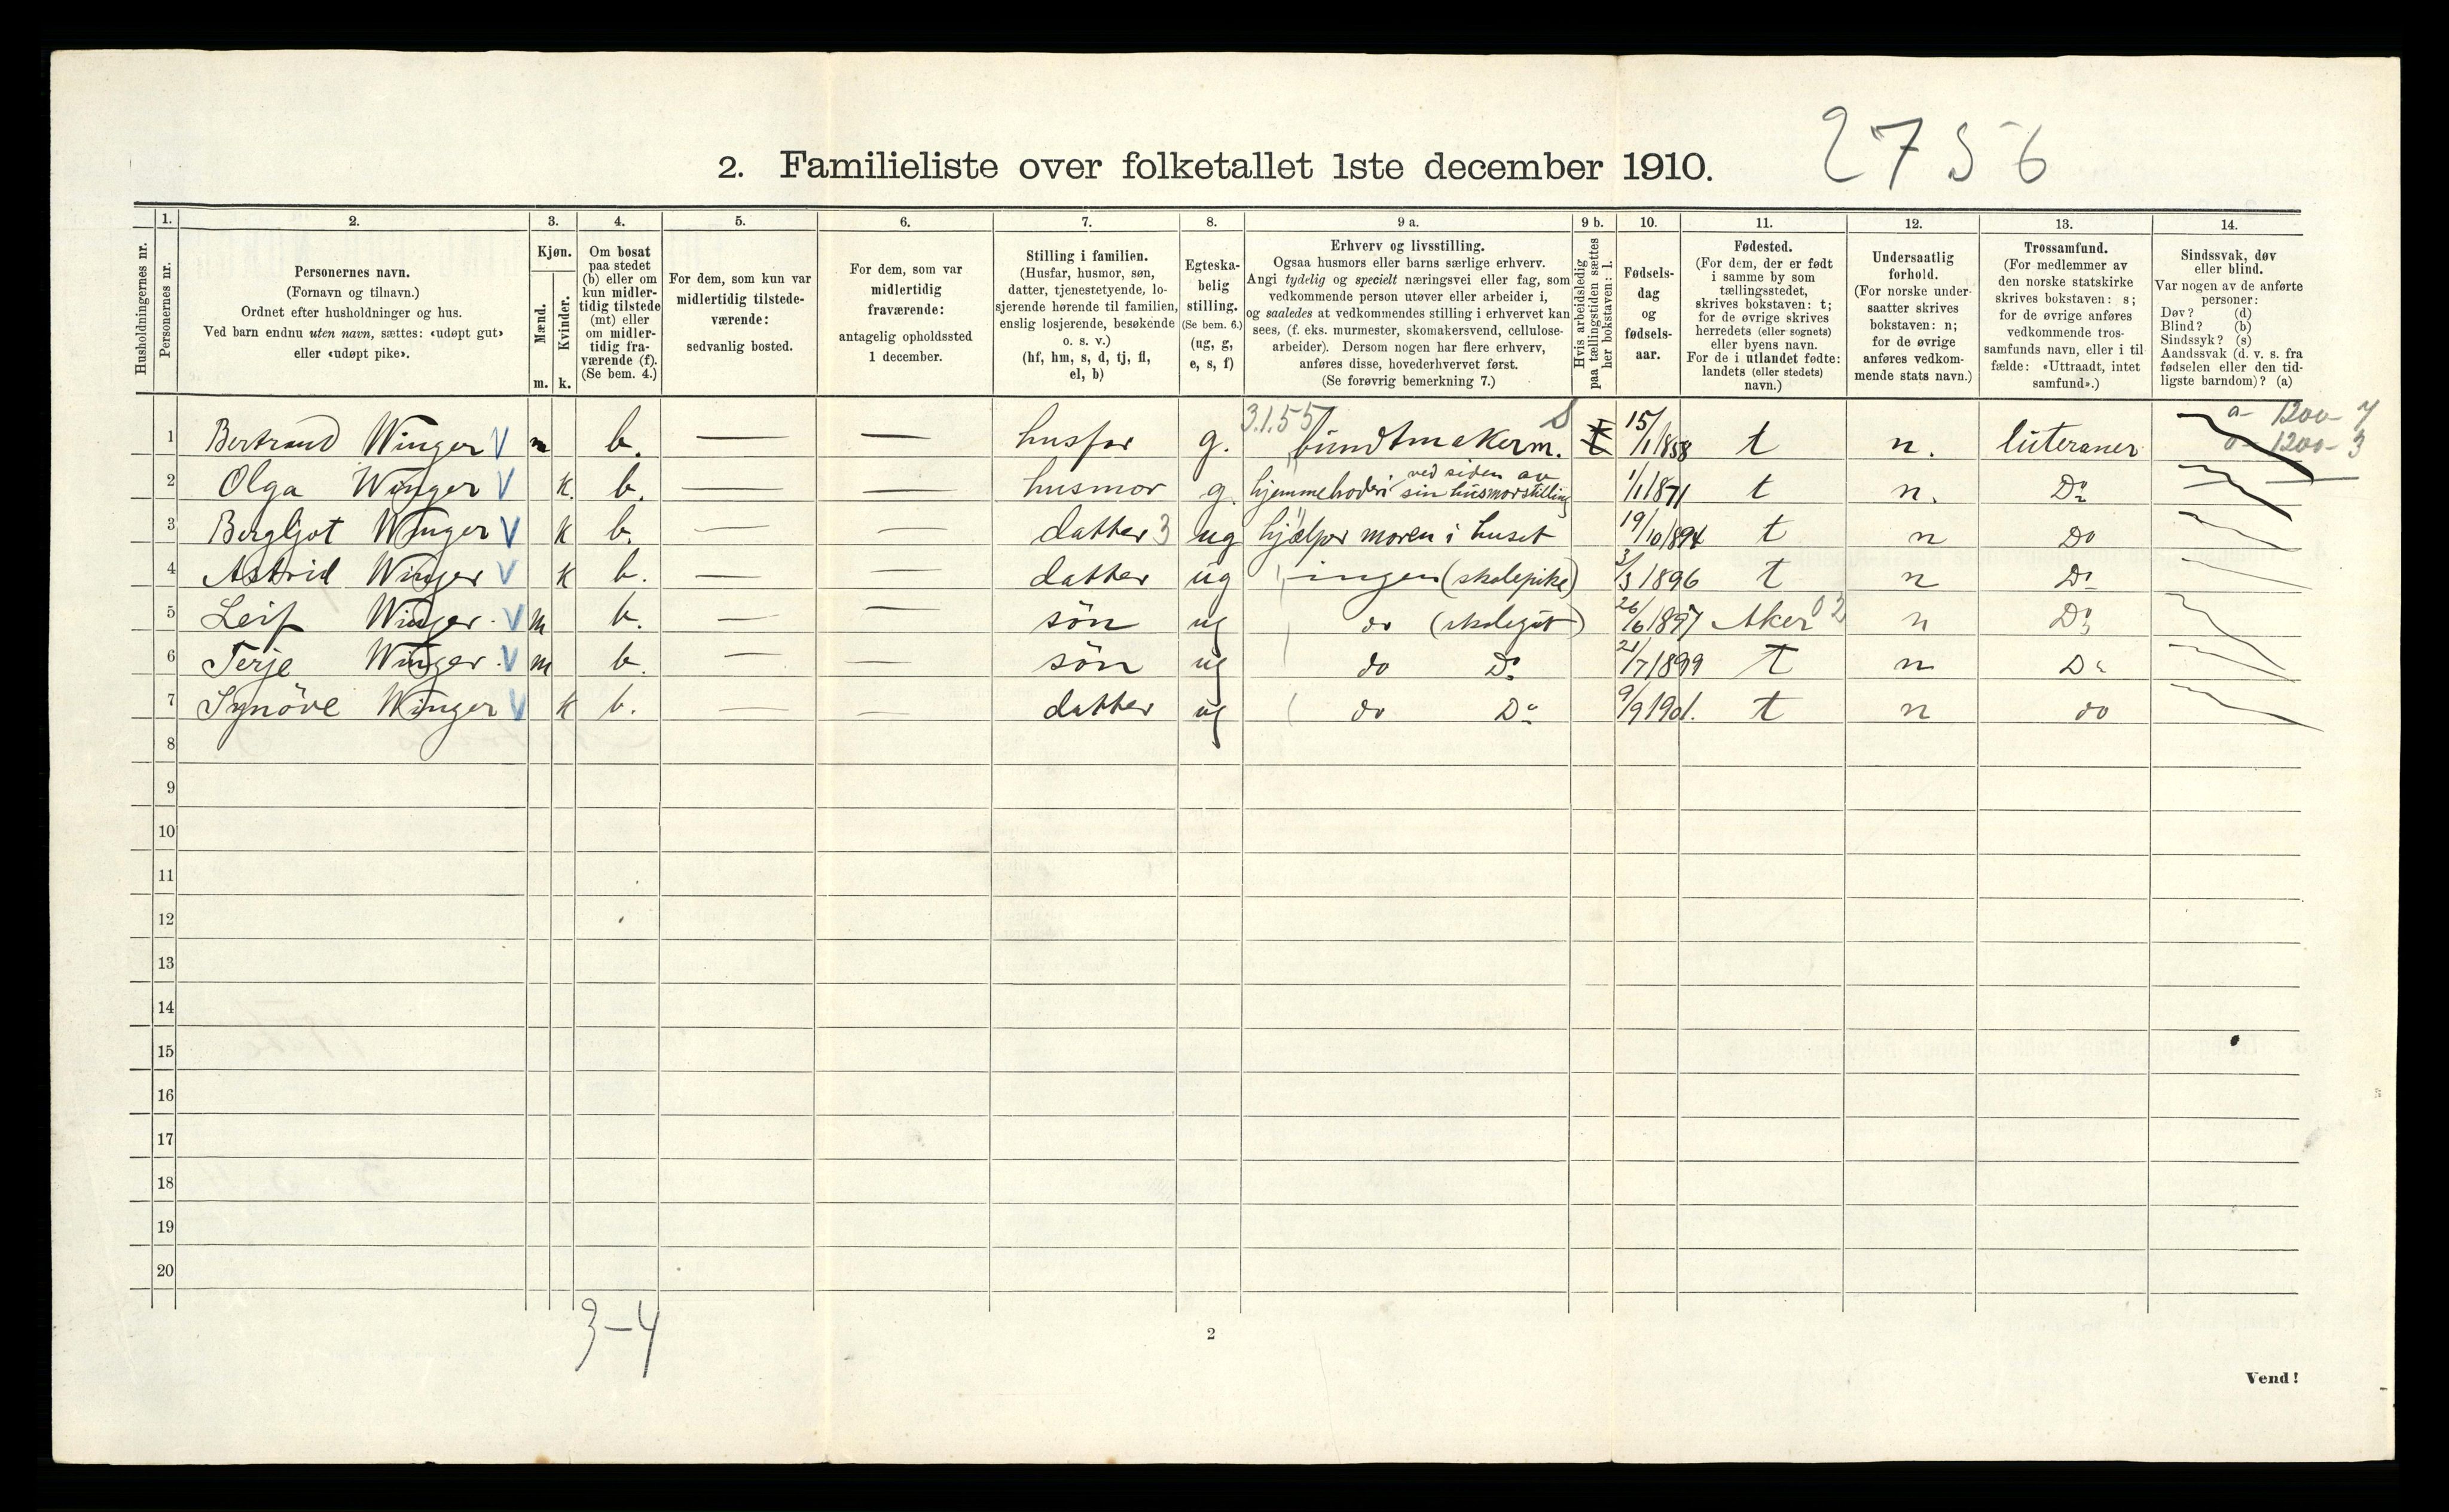 2756
2. Familieliste over folketallet 1ste december 1910.
Husholdningernes nr.
1. Personernes nr.
2. Personernes navn. (Fornavn og tilnavn.) Ordnet efter husholdninger og hus. Ved barn endnu uten navn, sættes: «udøpt gut» eller «udøpt pike».
3. Kjøn. Mænd. m. Kvinder. k.
4. Om bosat paa stedet (b) eller om kun midlertidig tilstede (mt) eller om midlertidig fraværende (f). (Se bem. 4.)
5. For dem, som kun var midlertidig tilstedeværende: sedvanlig bosted.
6. For dem, som var midlertidig fraværende: antagelig opholdssted 1 december.
7. Stilling i familien. (Husfar, husmor, søn, datter, tjenestetyende, losjerende hørende til familien, enslig losjerende, besøkende o. s. v.) (hf, hm, s, d, tj, fl, el, b)
8. Egteskabelig stilling. (Se bem. 6.) (ug, g, e, s, f)
9 a. Erhverv og livsstilling. Ogsaa husmors eller barns særlige erhverv. Angi tydelig og specielt næringsvei eller fag, som vedkommende person utøver eller arbeider i, og saaledes at vedkommendes stilling i erhvervet kan sees, (f. eks. murmester, skomakersvend, cellulosearbeider). Dersom nogen har flere erhverv, anføres disse, hovederhvervet først. (Se forøvrig bemerkning 7.)
9 b. Hvis arbeidsledig paa tællingstiden sættes her bokstaven: l.
10. Fødselsdag og fødselsaar.
11. Fødested. (For dem, der er født i samme by som tællingsstedet, skrives bokstaven: t; for de øvrige skrives herredets (eller sognets) eller byens navn. For de i utlandet fødte: landets (eller stedets) navn.)
12. Undersaatlig forhold. (For norske undersaatter skrives bokstaven: n; for de øvrige anføres vedkommende stats navn.)
13. Trossamfund. (For medlemmer av den norske statskirke skrives bokstaven: s; for de øvrige anføres vedkommende trossamfunds navn, eller i tilfælde: «Uttraadt, intet samfund».)
14. Sindssvak, døv eller blind. Var nogen av de anførte personer: Døv? (d) Blind? (b) Sindssyk? (s) Aandssvak (d. v. s. fra fødselen eller den tidligste barndom)? (a)
3.1.55 a- 1200-7
1 Bertrand Winger V m b. — — husfar g. bundtmakerm. t 15/1 1858 t n. luteraner 1200-3
2 Olga Winger V k. b. — — husmor g. hjemmehoderi ved siden av sin husmorstilling 1/1 1871 t n. Do
3 Bergljot Winger V k b. — — datter 3 ug hjælper moren i huset 19/10 1894 t n Do
4 Astrid Winger V k b. — — datter ug ingen (skolepike) 3/3 1896 t n Do
5 Leif Winger. V m b. — — sön ug do (skolegut) 26/6 1897 Aker 02 n Do
6 Terje Winger. V m b. — — sön ug do Do 21/7 1899 t n Do
7 Synöve Winger V k b. — — datter ug do Do 9/9 1901. t n do
8
9
10
11
12
13
14
15
16
17
18
19
20
3-4
2
Vend!